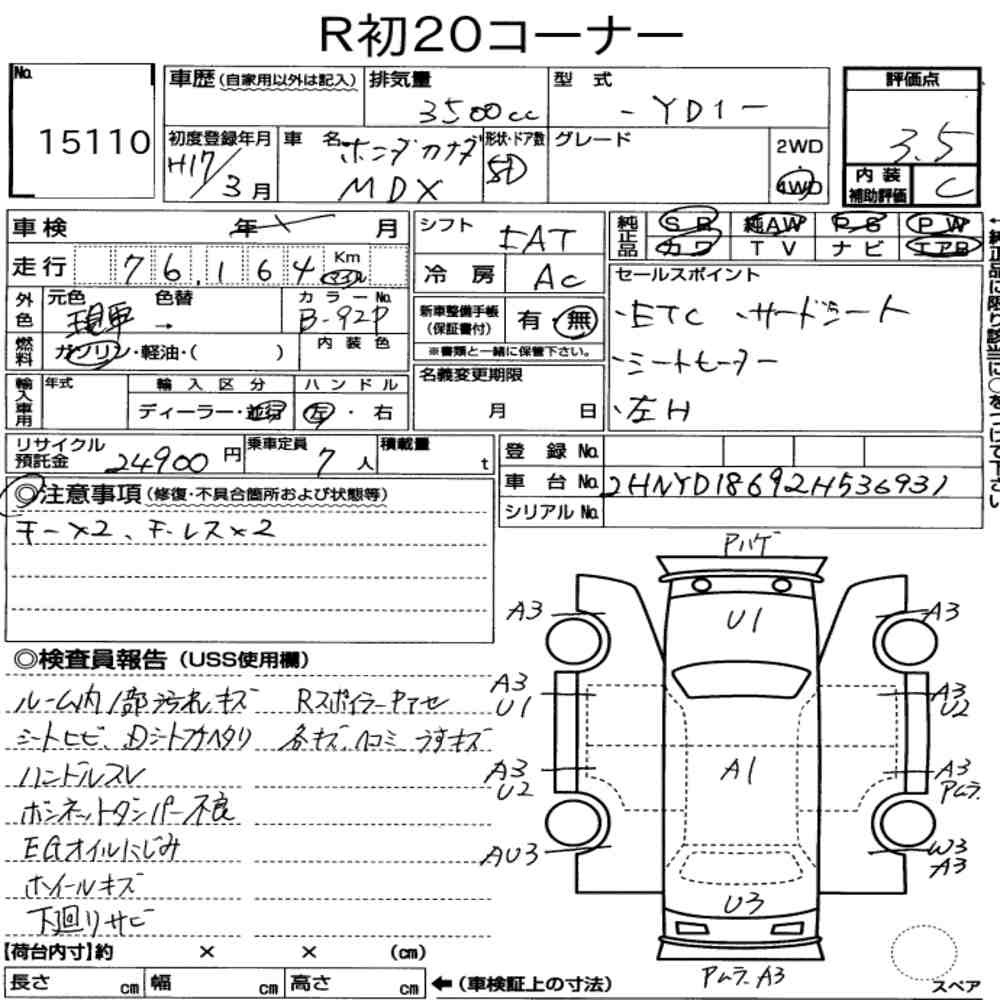 R初20コーナー
No.
15110
車歴(自家用以外は記入)
排気量
3500cc
型 式
-YD1-
評価点
3.5
初度登録年月
H17/3月
車 名
ホンダカナダ
MDX
形状・ドア数
5D
グレード
2WD
4WD
内 装
補助評価
C
車検 年 月
シフト
FAT
純正品
SR 純AW PS PW
カワ TV ナビ エアB
走行 76,164 Km マイル
冷 房
AC
セールスポイント
・ETC ・サードシート
・シートヒーター
・左H
外色
元色 色替
カラーNo.
B-92P
新車整備手帳
(保証書付)
有・無
※書類と一緒に保管下さい。
燃料
ガソリン・軽油・( )
内 装 色
輸入車用
年式
輸 入 区 分
ハ ン ド ル
ディーラー・並行
左・右
名義変更期限
月 日
リサイクル
預託金
24900円
乗車定員
7人
積載量
t
登 録 No.
車 台 No.
2HNYD18692H536931
シリアルNo.
←純正品に限り該当に○をつけて下さい
◎注意事項(修復・不具合箇所および状態等)
キー×2、キーレス×2
◎検査員報告(USS使用欄)
ルーム内1部汚れキズ Rスポイラーヤケアセ
シートヒビ、Dシートフチヘタリ 各キズ、ヘコミ、うすキズ
ハンドルスレ
ボンネットダンパー不良
EGオイルにじみ
ホイールキズ
下廻りサビ
Pハゲ
A3
U1
A3
A3
U1
A3
U2
A3
U2
A1
A3
Pムラ
AU3
W3
A3
U3
Pムラ.A3
【荷台内寸】約 × × (cm)
長さ cm 幅 cm 高さ cm ←(車検証上の寸法)
スペア